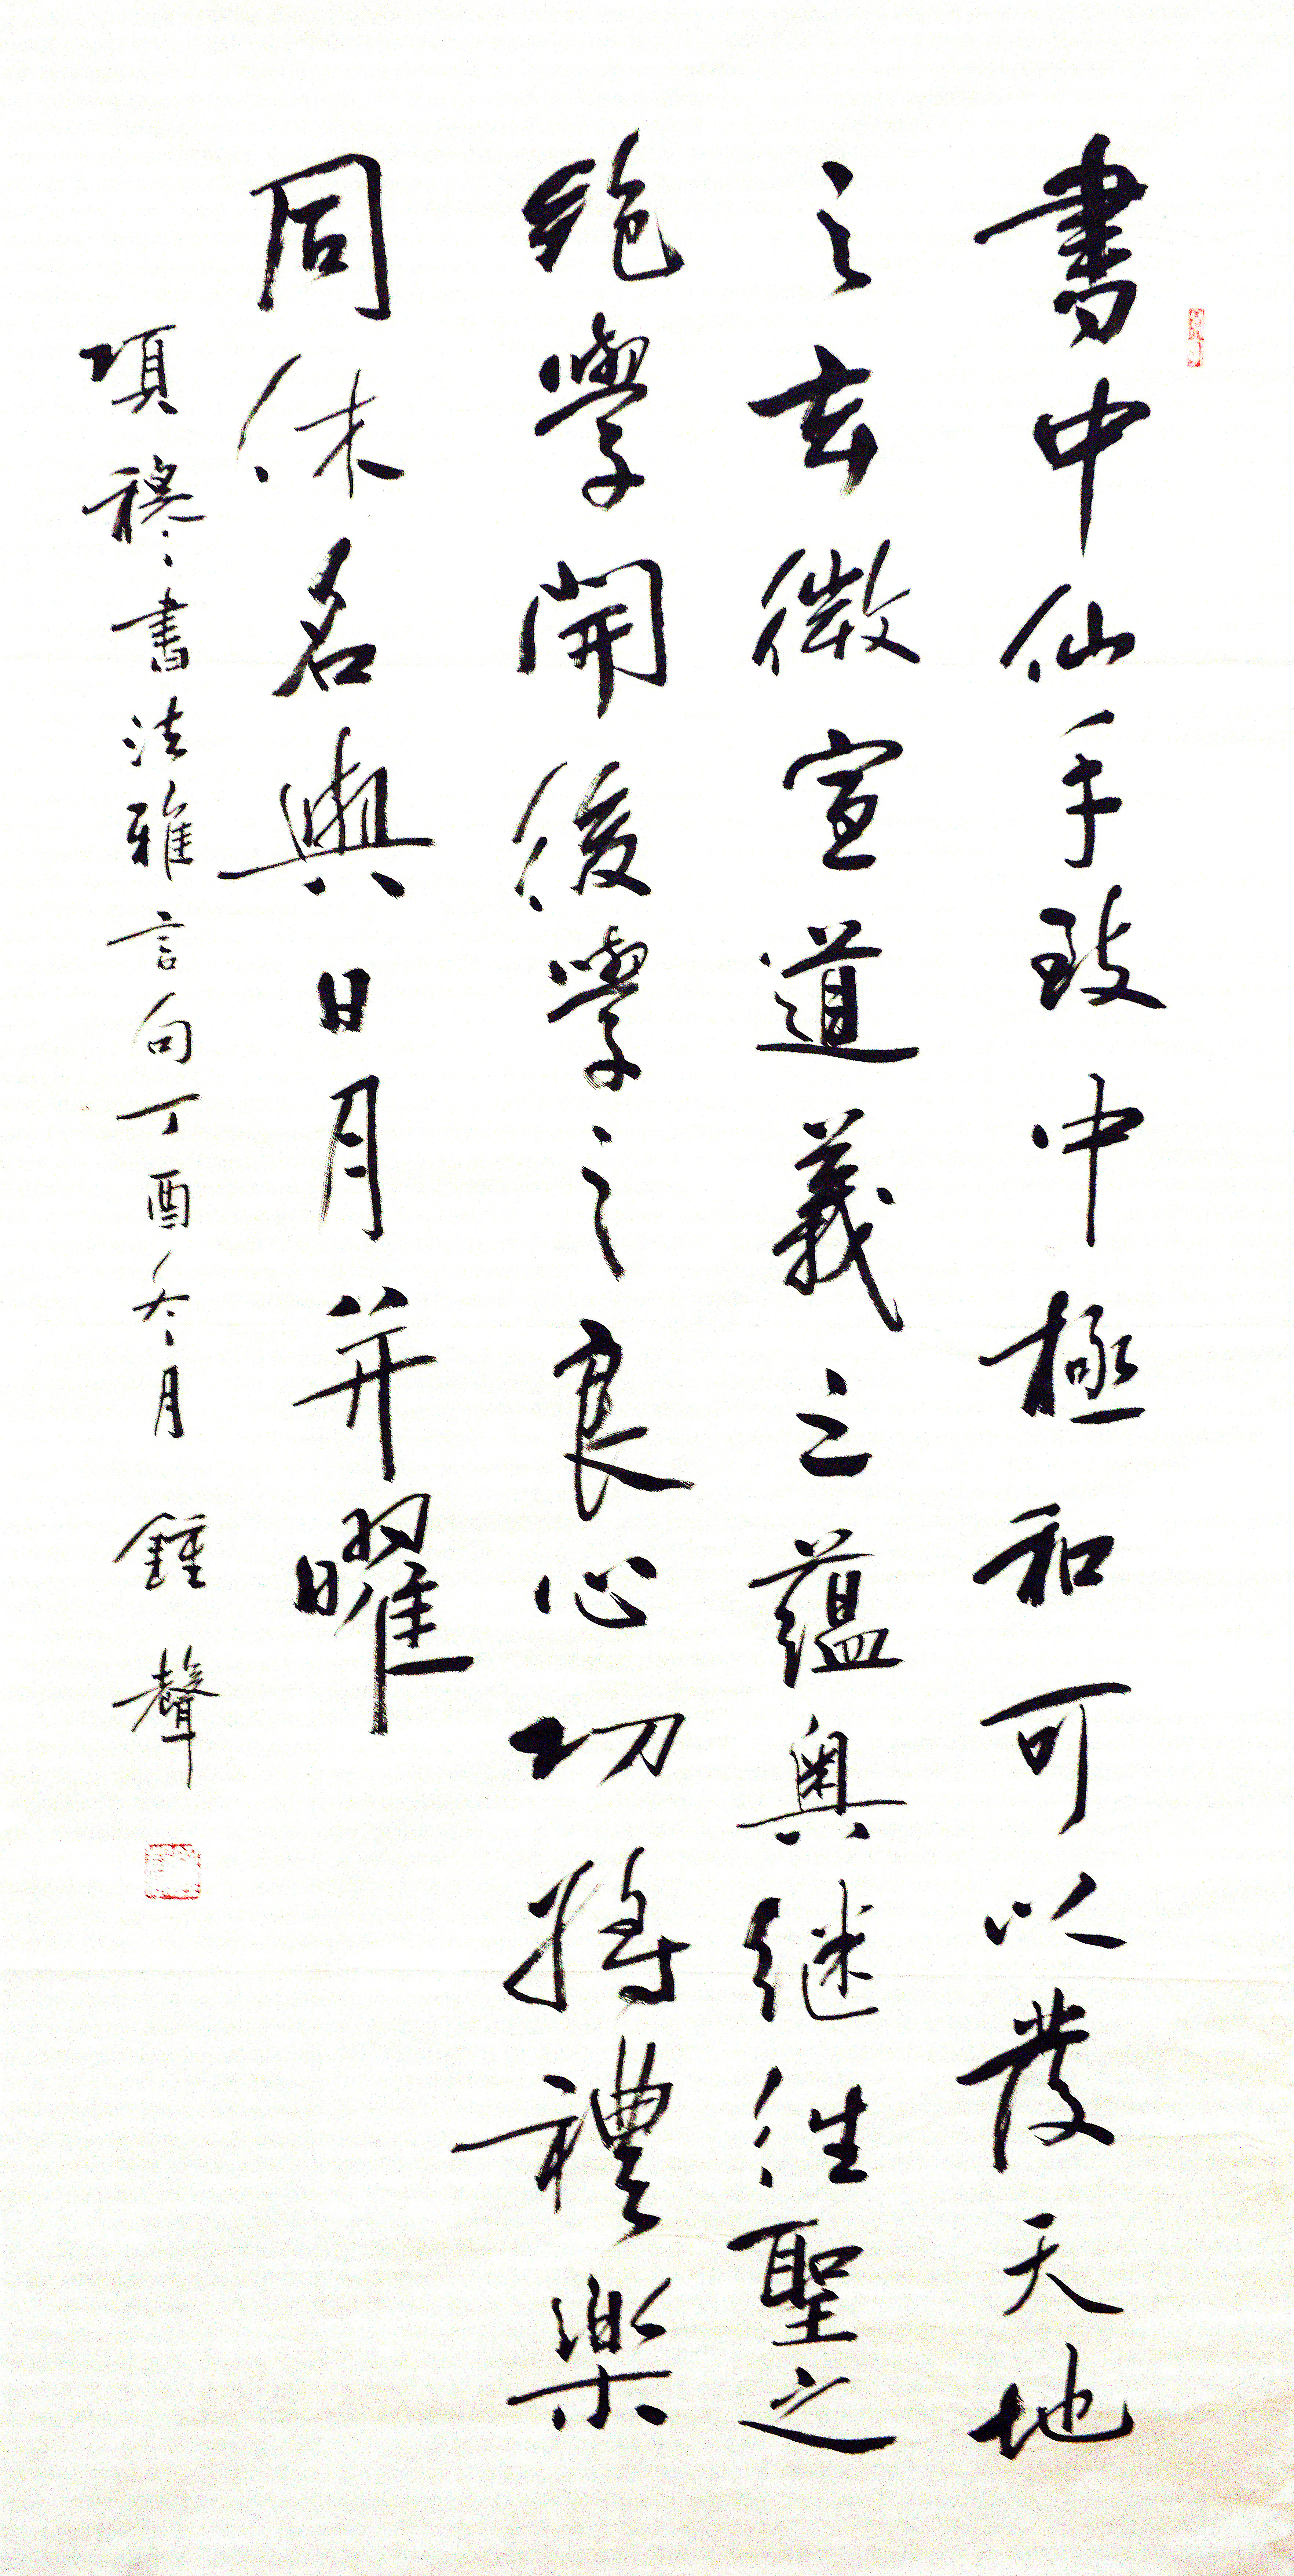 書中仙手致中極和可以發天地
之玄微宣道義之蕴奥继往聖之
絶學開後學之良心功將禮樂
同休名與日月并曜
項穆書法雅言句丁酉冬月鍾聲